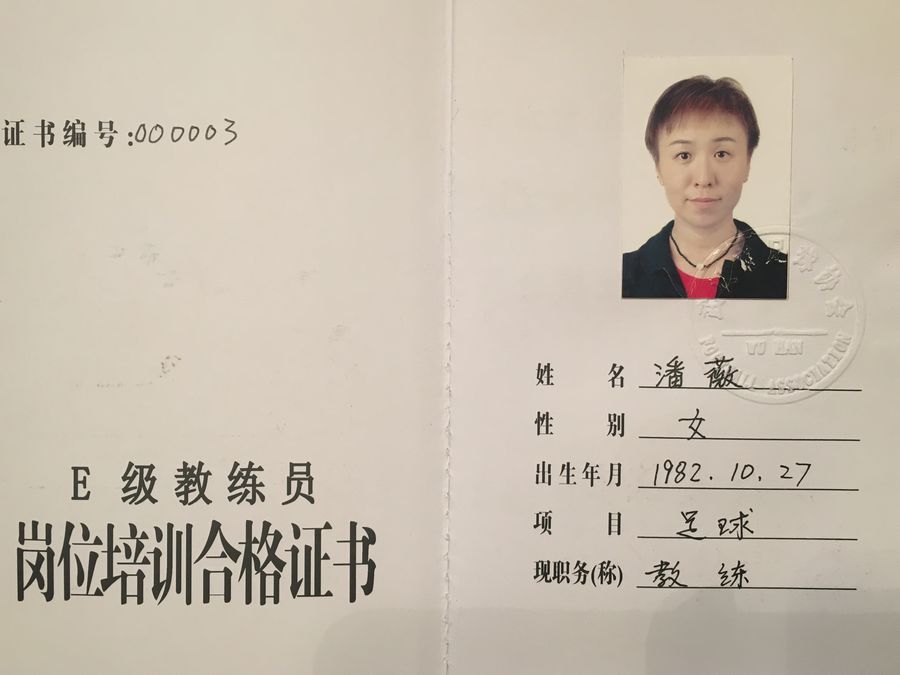 证书编号:000003
E 级教练员
岗位培训合格证书
足球协会
WU HAN
FOOTBALL ASSOCIATION
姓 名 潘薇
性 别 女
出生年月 1982.10.27
项 目 足球
现职务(称) 教练